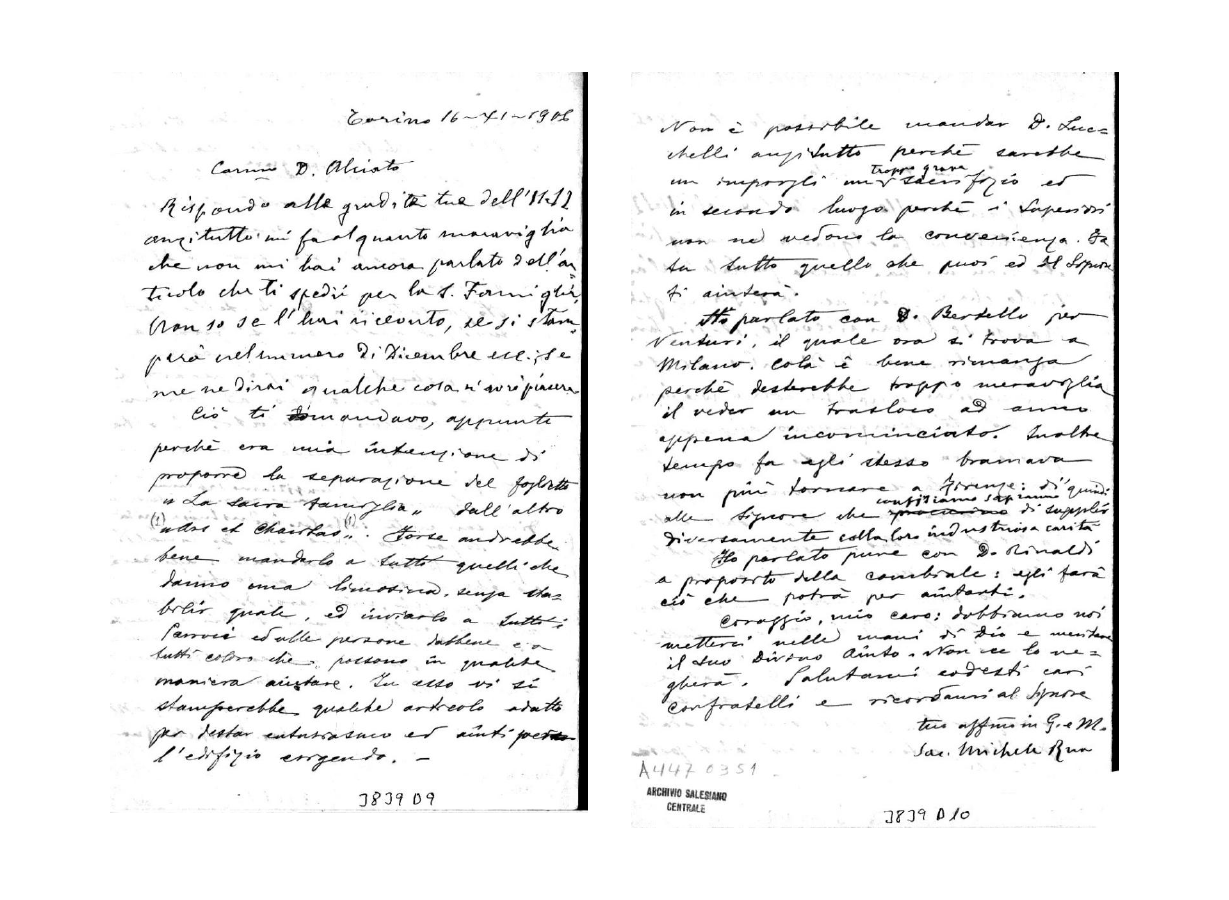 Torino 16-XI-1906
Carmo D. Alciato
Rispondo alla gradita tua dell'11.
anzitutto mi fa alquanto maraviglia
che non mi hai ancora parlato dell'ar=
ticolo che ti spedii per la S. Famiglia.
Non so se l'hai ricevuto, se si stam=
perà nel numero di Dicembre ecc.; se
me ne dirai qualche cosa n'avrò piacere
Ciò ti domandavo, appunto
perchè era mia intenzione di
proporre la separazione del foglietto
" La Sacra Famiglia „ dall'altro
(1) et Charitas „ (1). Forse andrebbe
bene mandarlo a tutti quelli che
danno una limosina, senza sta=
bilir quale, ed inviarlo a tutti i
Parroci ed alle persone dabbene e a
tutti coloro che possono in qualche
maniera aiutare. In esso vi si
stamperebbe qualche articolo adatto
per destar entusiasmo ed aiuti per
l'edifizio ergendo. –
J839 D9
Non è possibile mandar D. Luc=
chelli anzitutto perchè sarebbe
troppo grave
un imporgli un sacrifizio ed
in secondo luogo perchè i Superiori
non ne vedono la convenienza. Fa
tu tutto quello che puoi ed il Signore
ti aiuterà.
Ho parlato con D. Bertello per
Venturi, il quale ora si trova a
Milano. Colà è bene rimanga
perchè desterebbe troppo meraviglia
il veder un trasloco ad anno
appena incominciato. Inoltre
tempo fa egli stesso bramava
non più tornare a Firenze: di' quindi
confidiamo sapranno
alle Signore che procurino di supplir
diversamente colla loro industriosa carità
Ho parlato pure con D. Rinaldi
a proposito della cambiale: egli farà
ciò che potrà per aiutarti.
Coraggio, mio caro: dobbiamo noi
metterci nelle mani di Dio e meritare
il suo Divino Aiuto. Non ce lo ne=
gherà. Salutami codesti cari
confratelli e ricordami al Signore
tuo affmo in G. e M.
Sac. Michele Rua
A4470351
ARCHIVIO SALESIANO
CENTRALE
J839 D10